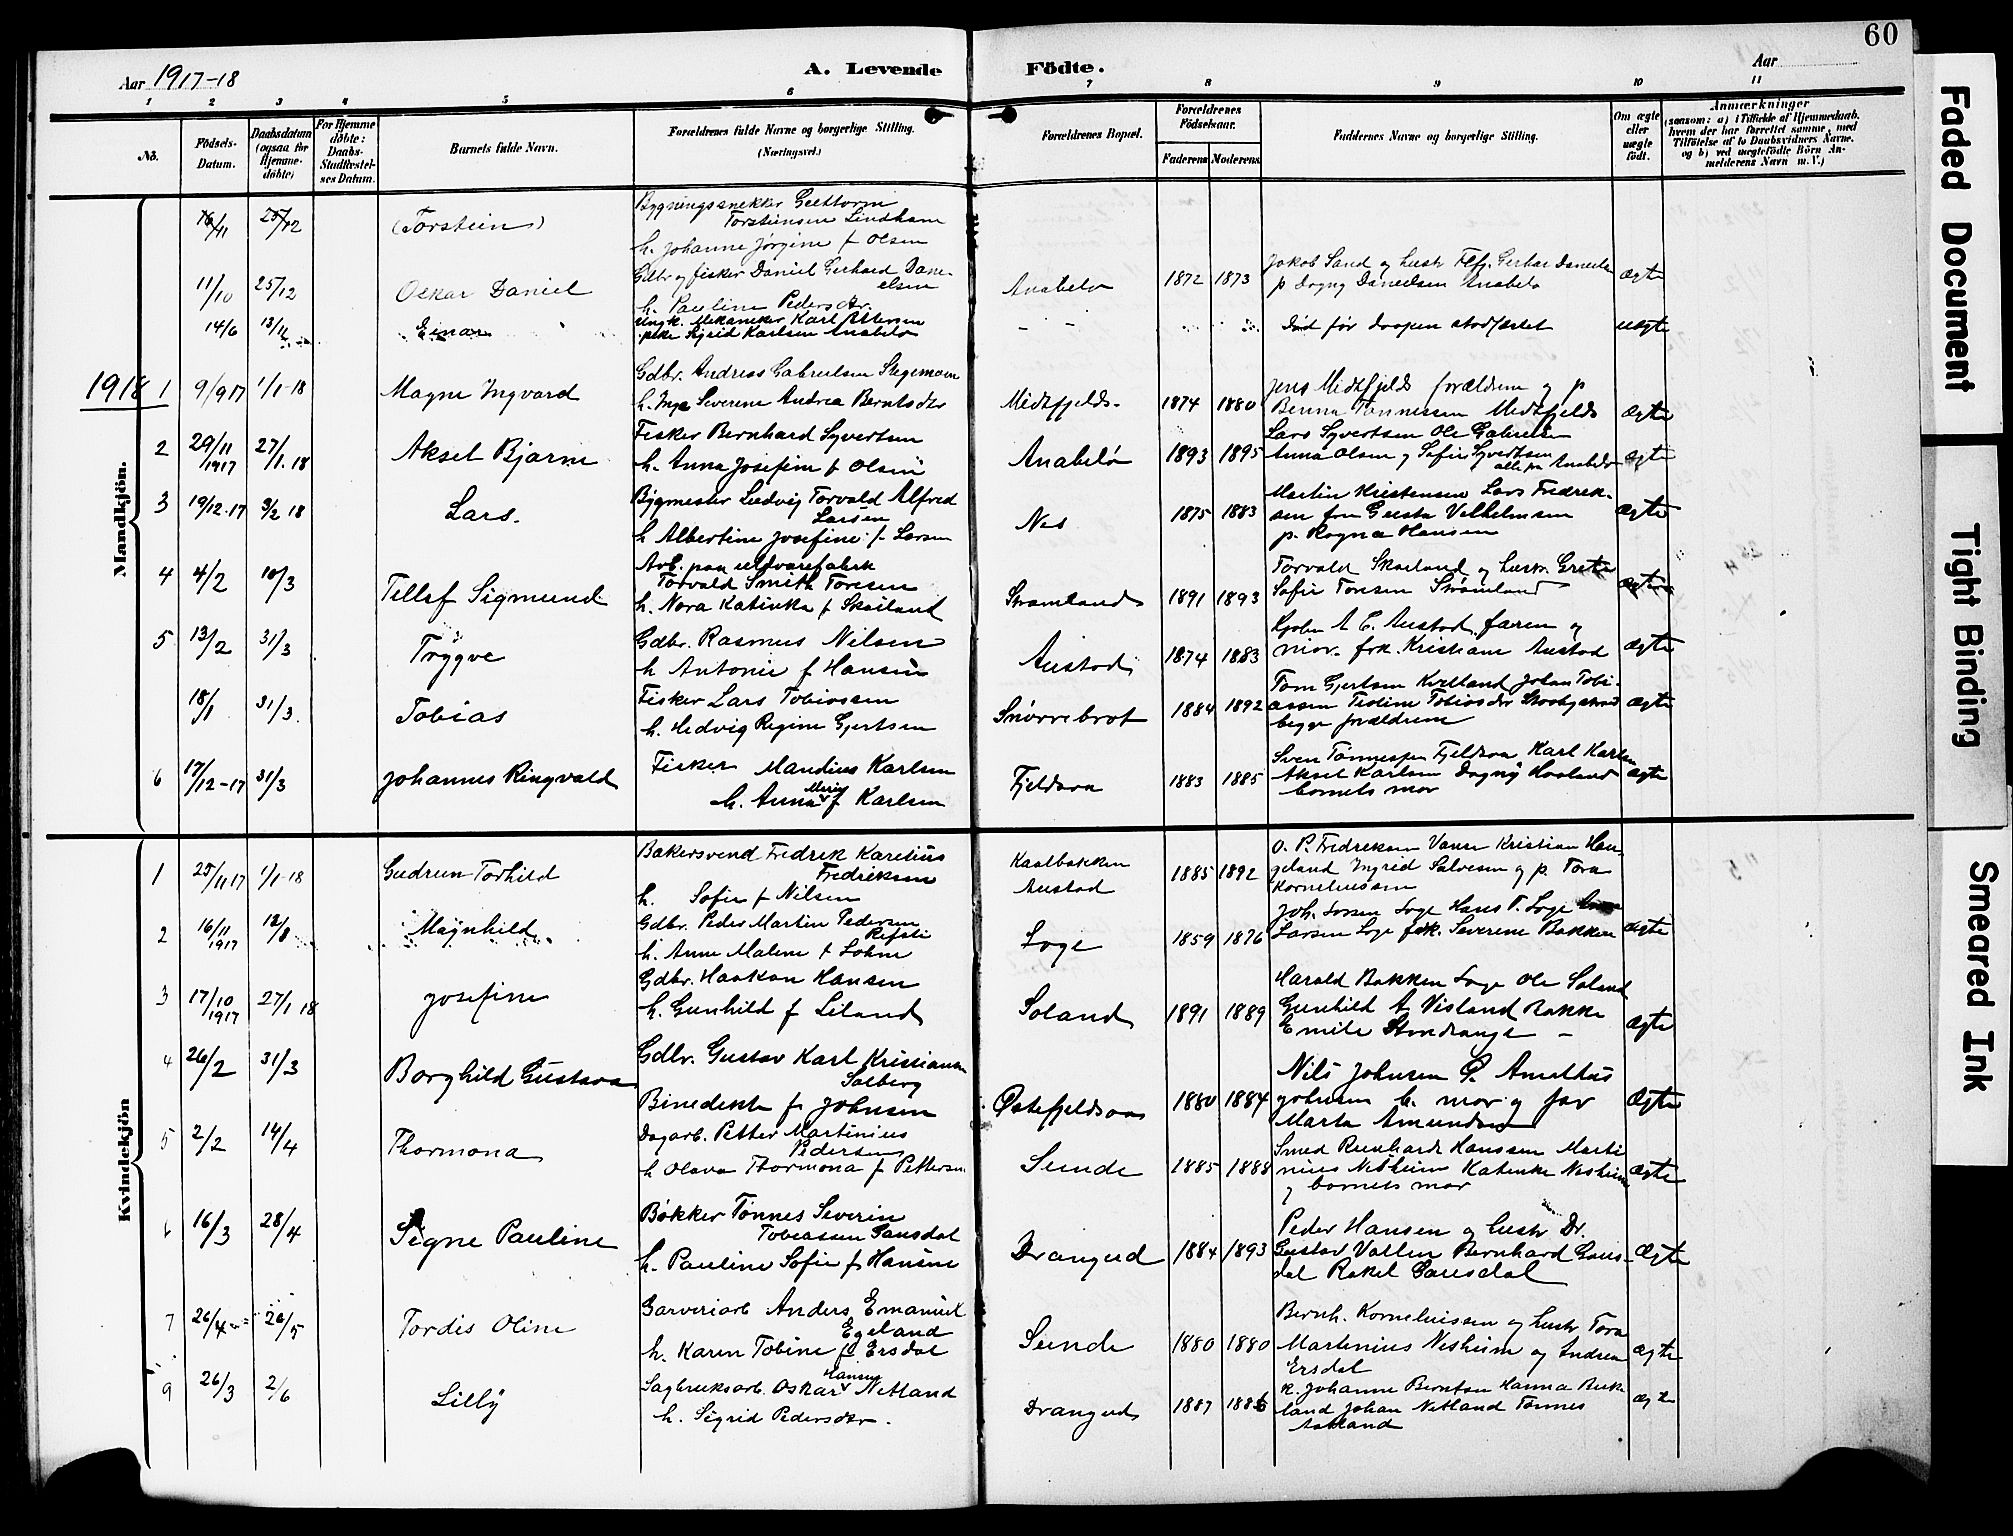 60
Aar 1917-18
A. Levende Födte.
Aar
1 2 3 4 5 6 7 8 9 10 11
No.
Födsels-Datum.
Daabsdatum (ogsaa for Hjemmedöbte)
For Hjemmedöbte: Daabs-Stadfæstelses Datum.
Barnets fulde Navn.
Forældrenes fulde Navne og borgerlige Stilling. (Næringsvei.)
Forældrenes Bopæl.
Forældrenes Födselsaar.
Faderens Moderens
Faddernes Navne og borgerlige Stilling.
Om ægte eller uægte födt.
Anmærkninger
(saasom: a) i Tilfælde af Hjemmedaab, hvem der har forrettet samme, med Tilföielse af to Daabsvidners Navne, og b) ved uægtefödte Börn Anmelderens Navn m. V.)
Mandkjön.
16/11 25/12 (Torstein) Bygningssnekker
Torstensen Lindham
h. Johanne Jørgine f Olsen
11/10 25/12 Oskar Daniel Gdbr og fisker Daniel Gerhard Danielsen
h. Pauline Pedersdtr. Anabelø 1872 1873 Jakob Sand og hustr
p Dagny Danielsen Anabelø Ægte
14/6 Einar Ungk. Mekaniker Karl Attersen
pike Sigrid Karlsen Anabelø - - Død før daapen stadfæstet uægte
1918 1 9/9 17 1/1-18 Magne Ingvard Gdbr. Andreas Gabrielsen Stegemoen
h. Inga Severine Andrea Berntsdtr Midtfjeld 1874 1880 Jens Midtfjeld forældrene og p
Benna Tønnessen Midtfjeld Ægte
2 29/11 1917 27/1.18 Aksel Bjarne Fisker Bernhard Syvertsen
h. Anna Josefine f Olsen Anabelø 1893 1895 Lars Syvertsen Ole Gabrielsen
Anna Olsen og Sofie Syvertsen alle fra Anabelø Ægte
3 19/12-17 3/2 18 Lars. Bygmester Ludvig Torvald Alfred
Larsen
h Albertine Josefine f. Larsen Nes 1875 1883 Martin Kristensen Lars Fredriksen
fru Gusta Velhelmsen
p. Ragna Hansen Ægte
4 4/2 10/3 Tellef Sigmund Arb. paa uldvarefabrik
Torvald Smith Toresen
h. Nora Katinka f Skailand Strømland 1891 1893 Torvald Skailand og hustr. Grete
Sofie Toresen Strømland Ægte
5 13/2 31/3 Trygve Gdbr. Rasmus Nilsen
h Antonie f Hansen Austad 1874 1883 A. C. Austad faren og
mor. frk. Kristiane Austad Ægte
18/1 31/3 Tobias Fisker Lars Tobiassen
h. Hedvig Regine Gjertsen Snørrebrot 1884 1892 Tom Gjertsen Kvelland Johan Tobiassen
Tesline Tobiasdtr
begge forældrene Ægte
6 17/12-17 31/3 Johannes Ringvald Fisker Mandius Karlsen
h. Anna Marie f Karlsen Fjeldsaa 1883 1885 Sven Tønnessen Fjeldsaa Karl Karlsen
Aksel Karlsen Dagny Haaland
barnets mor Ægte
Kvindekjön
1 25/11 17 1/1-18 Gudrun Torhild Bakersvend Fredrik Karelius
Fredriksen
h. Sofie f Nilsen Kaalbakken
Austad 1885 1892 O. P. Fredriksen Vanse Kristian Haugeland
Ingrid Salvesen og p. Tora
Korneliussen
2 16/11 1917 Magnhild Gdbr. Peder Martin Pedersen
Refsti
h. Anne Malene f Lohne Loge 1859 1876 Joh. Larsen Loge Hans T. Loge
Larsen Loge frk. Severine Bakken Ægte
3 17/10 1917 27/1 18 Josefine Gdbr. Haakon Hansen
h. Gunhild f Liland Soland 1891 1889 Harald Bakken Loge Ole Soland
Gunhild A Visland Bakke
Emile Stendrange - Ægte
4 26/2 31/3 Borghild Gustava Gdbr. Gustav Karl Kristiansen
Salberg
Binedikte f Johnsen Østefjeldsaa 1880 1884 Nils Johnsen P. Amathus
Johnsen b. mor og far
Marta Amundsen Ægte
5 2/2 14/4 Thormona Dagarb. Petter Martinius
Pedersen
h Olava Thormona f Pettersen Sunde 1885 1888 Smed Reinhardt Hanssen Martinius
Nesheim Katinka Nesheim
og barnets mor Ægte
6 16/3 28/4 Signe Pauline Bøkker Tønnes Severin
Tobiassen Gausdal
h. Pauline Sofie f Hansen Drangeid 1884 1893 Peder Hansen og hustr Dr.
Gustav Vatten Bernhard Gausdal
Rakel Gausdal Ægte
7 26/4 26/5 Tordis Oline Garveriarb Anders Emanuel
Egeland
h. Karen Tobine f Ersdal Sunde 1880 1880 Bernh. Korneliussen og hustr Tora
Martinius Nesheim og Andrea
Ersdal Ægte
9 26/3 2/6 Lilly Sagbruksarb. Oskar Hansen Netland
h. Sigrid Pedersdtr. Drangeid 1887 1886 k. Johanne Berntsen Hanna Birkeland
Johan Netland Tønnes
Aatland Ægte
Faded Document
Tight Binding
Smeared Ink